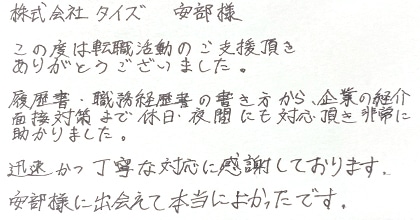 株式会社タイズ 安部様
この度は転職活動のご支援頂き
ありがとうございました。
履歴書・職務経歴書の書き方から、企業の紹介
面接対策まで休日・夜間にも対応頂き非常に
助かりました。
迅速かつ丁寧な対応に感謝しております。
安部様に出会えて本当によかったです。